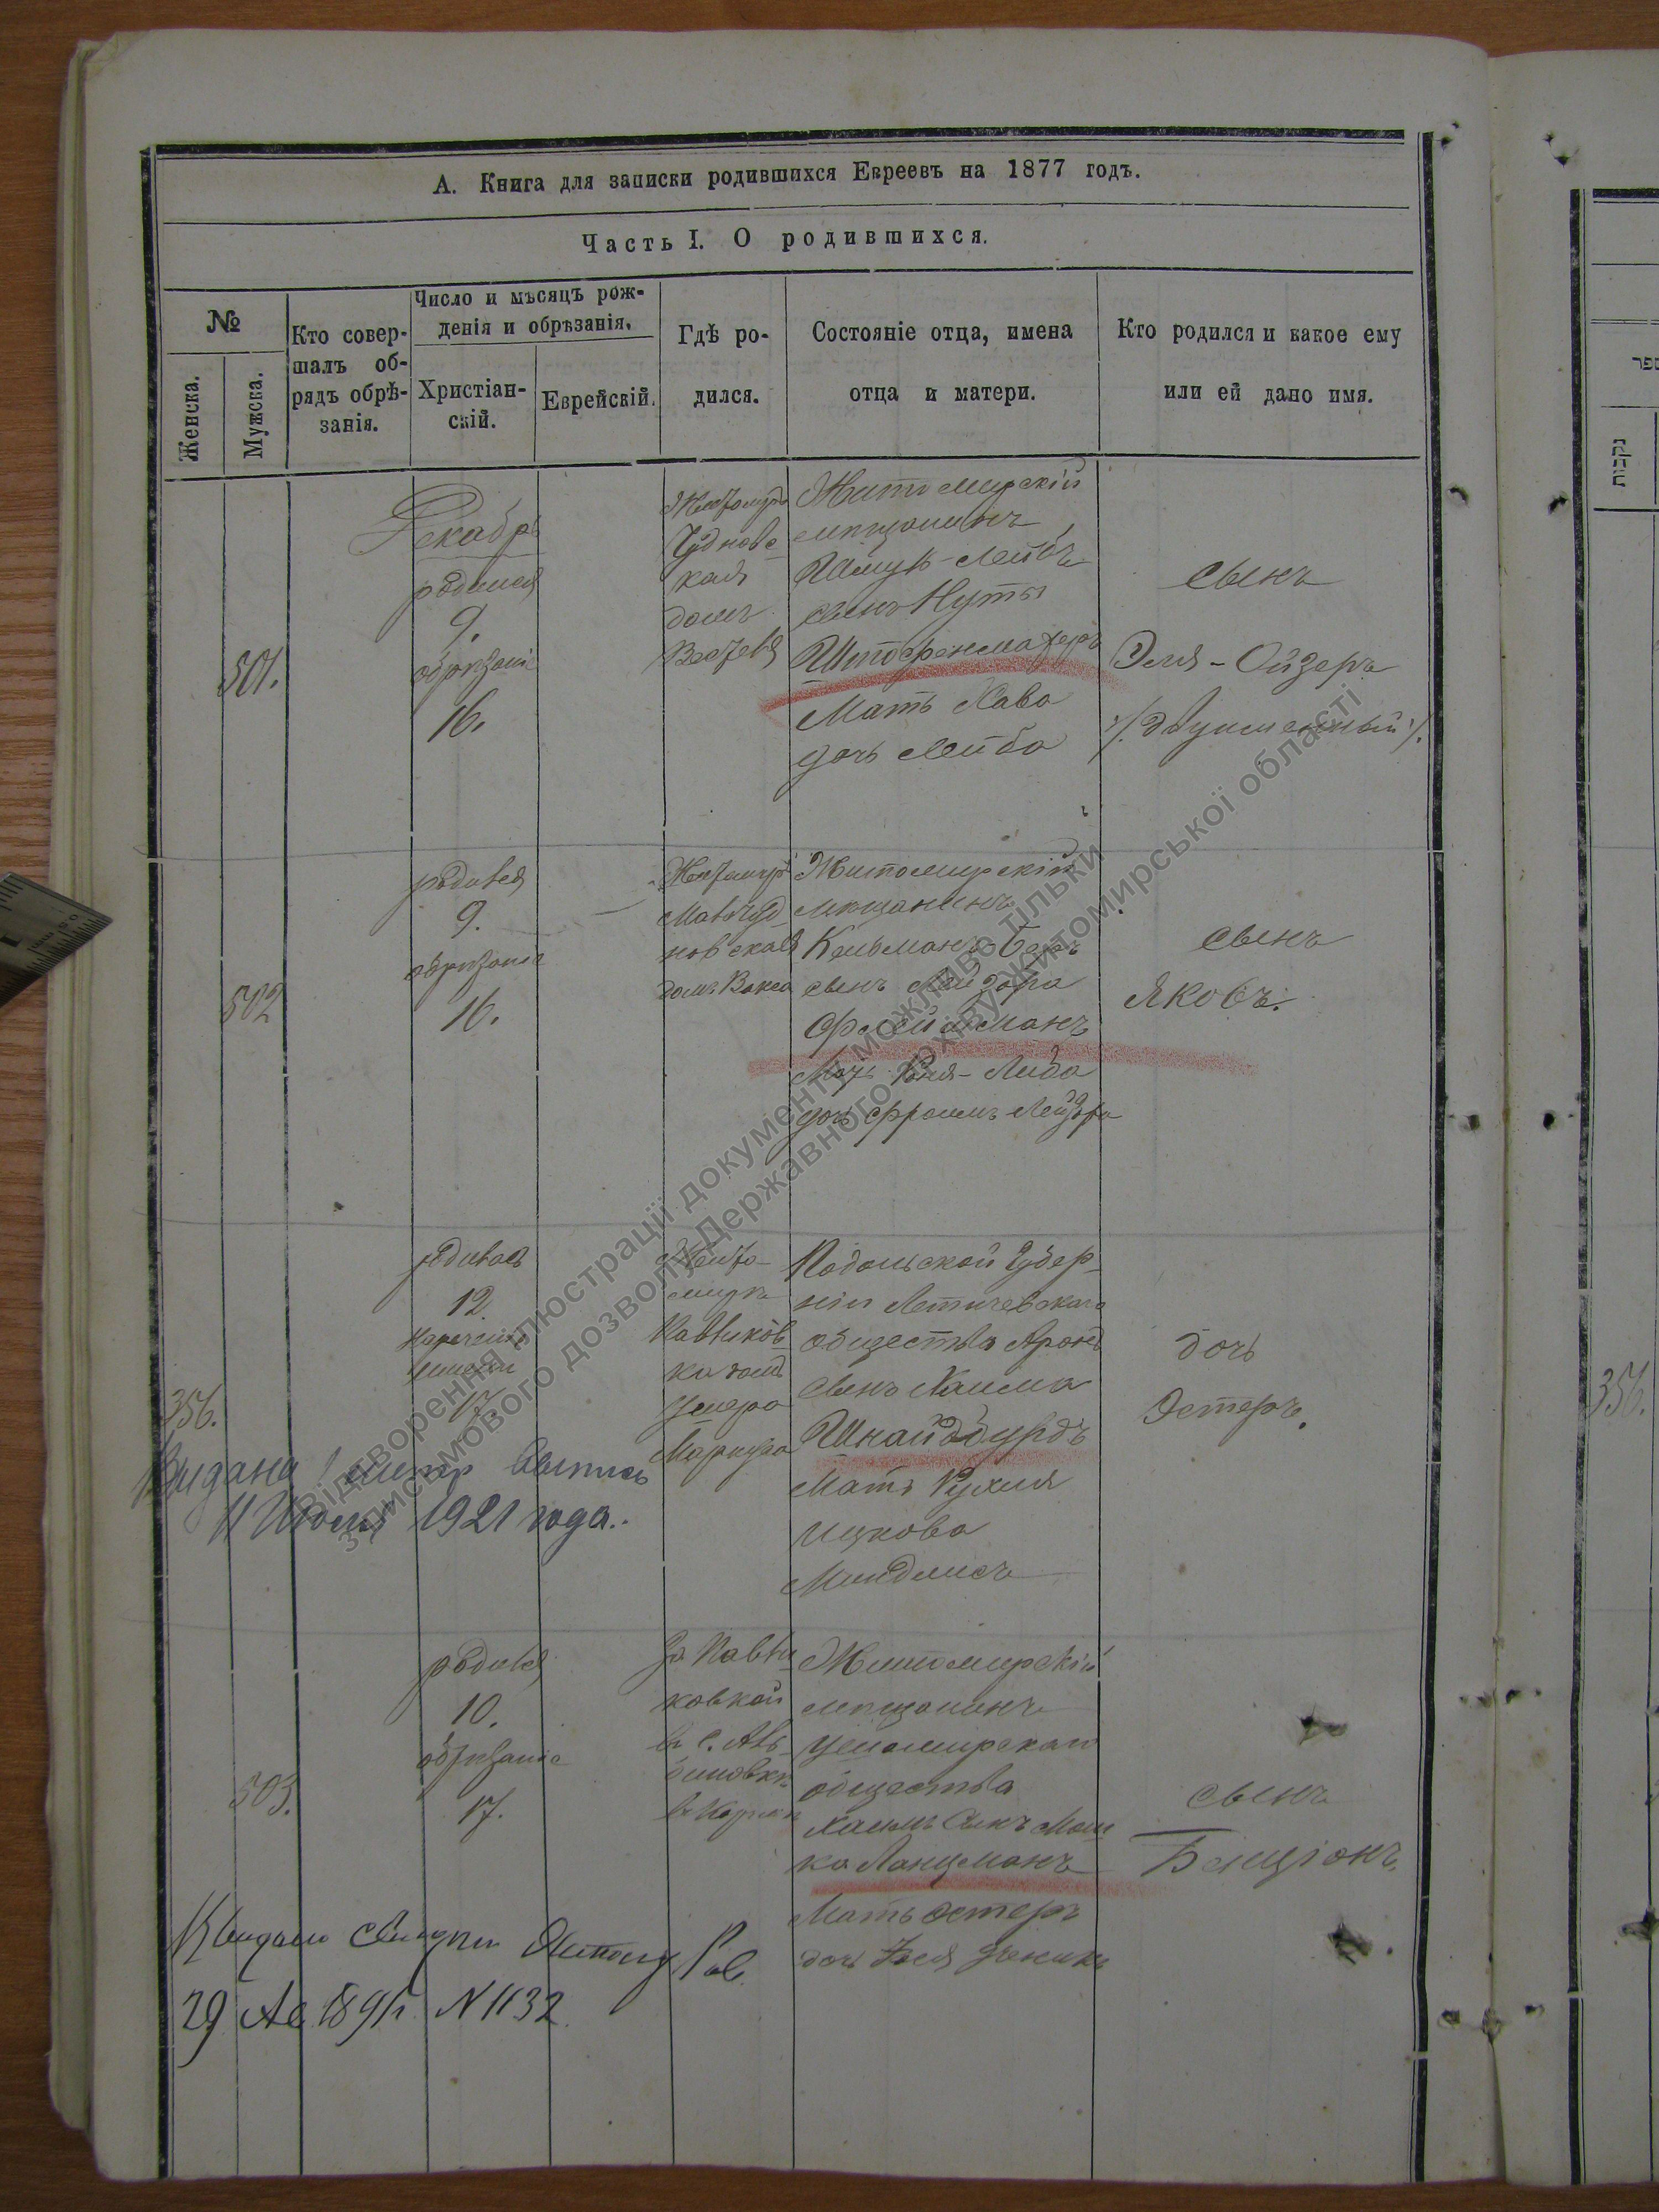 А. Книга для записки родившихся Евреевъ на 1877 годъ.
Часть I. О родившихся.
№
Женска.
Мужска.
Кто совер-
шалъ об-
рядъ обрѣ-
занія.
Число и мѣсяцъ рож-
денія и обрѣзанія.
Христіан-
скій.
Еврейскій.
Гдѣ ро-
дился.
Состояніе отца, имена
отца и матери.
Кто родился и какое ему
или ей дано имя.
501.
Декабрь
родился
9.
обрѣзаніе
16.
Житомиръ
Чуднов
ская
домъ
Житомирскій
мѣщанинъ
Шмуль-Лейбъ
сынъ Нуты
Штофенмахеръ
Мать Хава
дочь Лейба
сынъ
Эля-Ойзеръ
/. Двуименный ./
502
родился
9.
обрѣзаніе
16.
Житомиръ
Малочуд
новская
домъ Вакса
Житомирскій
мѣщанинъ
Кельманъ-Беръ
сынъ Лейзора
Флейшманъ
Мать Хая-Либа
дочь Фроимъ Лейзора
сынъ
Яковъ.
356.
родилась
12
наречение
имени
17.
Жито-
миръ
Павликов
ка домъ
Подольской Губер-
ніи Летичевскаго
общества Аронъ
сынъ Хаима
Шнайдбурдъ
Мать Рухля
Ицкова
Миндлисъ
дочь
Эстеръ.
Выдана метр выпись
11 Июля 1921 года.
503.
родился
10.
обрѣзаніе
17.
За Павли
ковкой
въ с.
Житомирскій
мѣщанинъ
общества
Хаимъ Сынъ Мош
ка Ланцманъ
Мать Эстеръ
дочь
сынъ
Бенціонъ.
29 1891 г. N 1132
356.
ספר
נקבות
Відтворення ілюстрації документу можливо тільки
з письмового дозволу Державного архіву Житомирської області